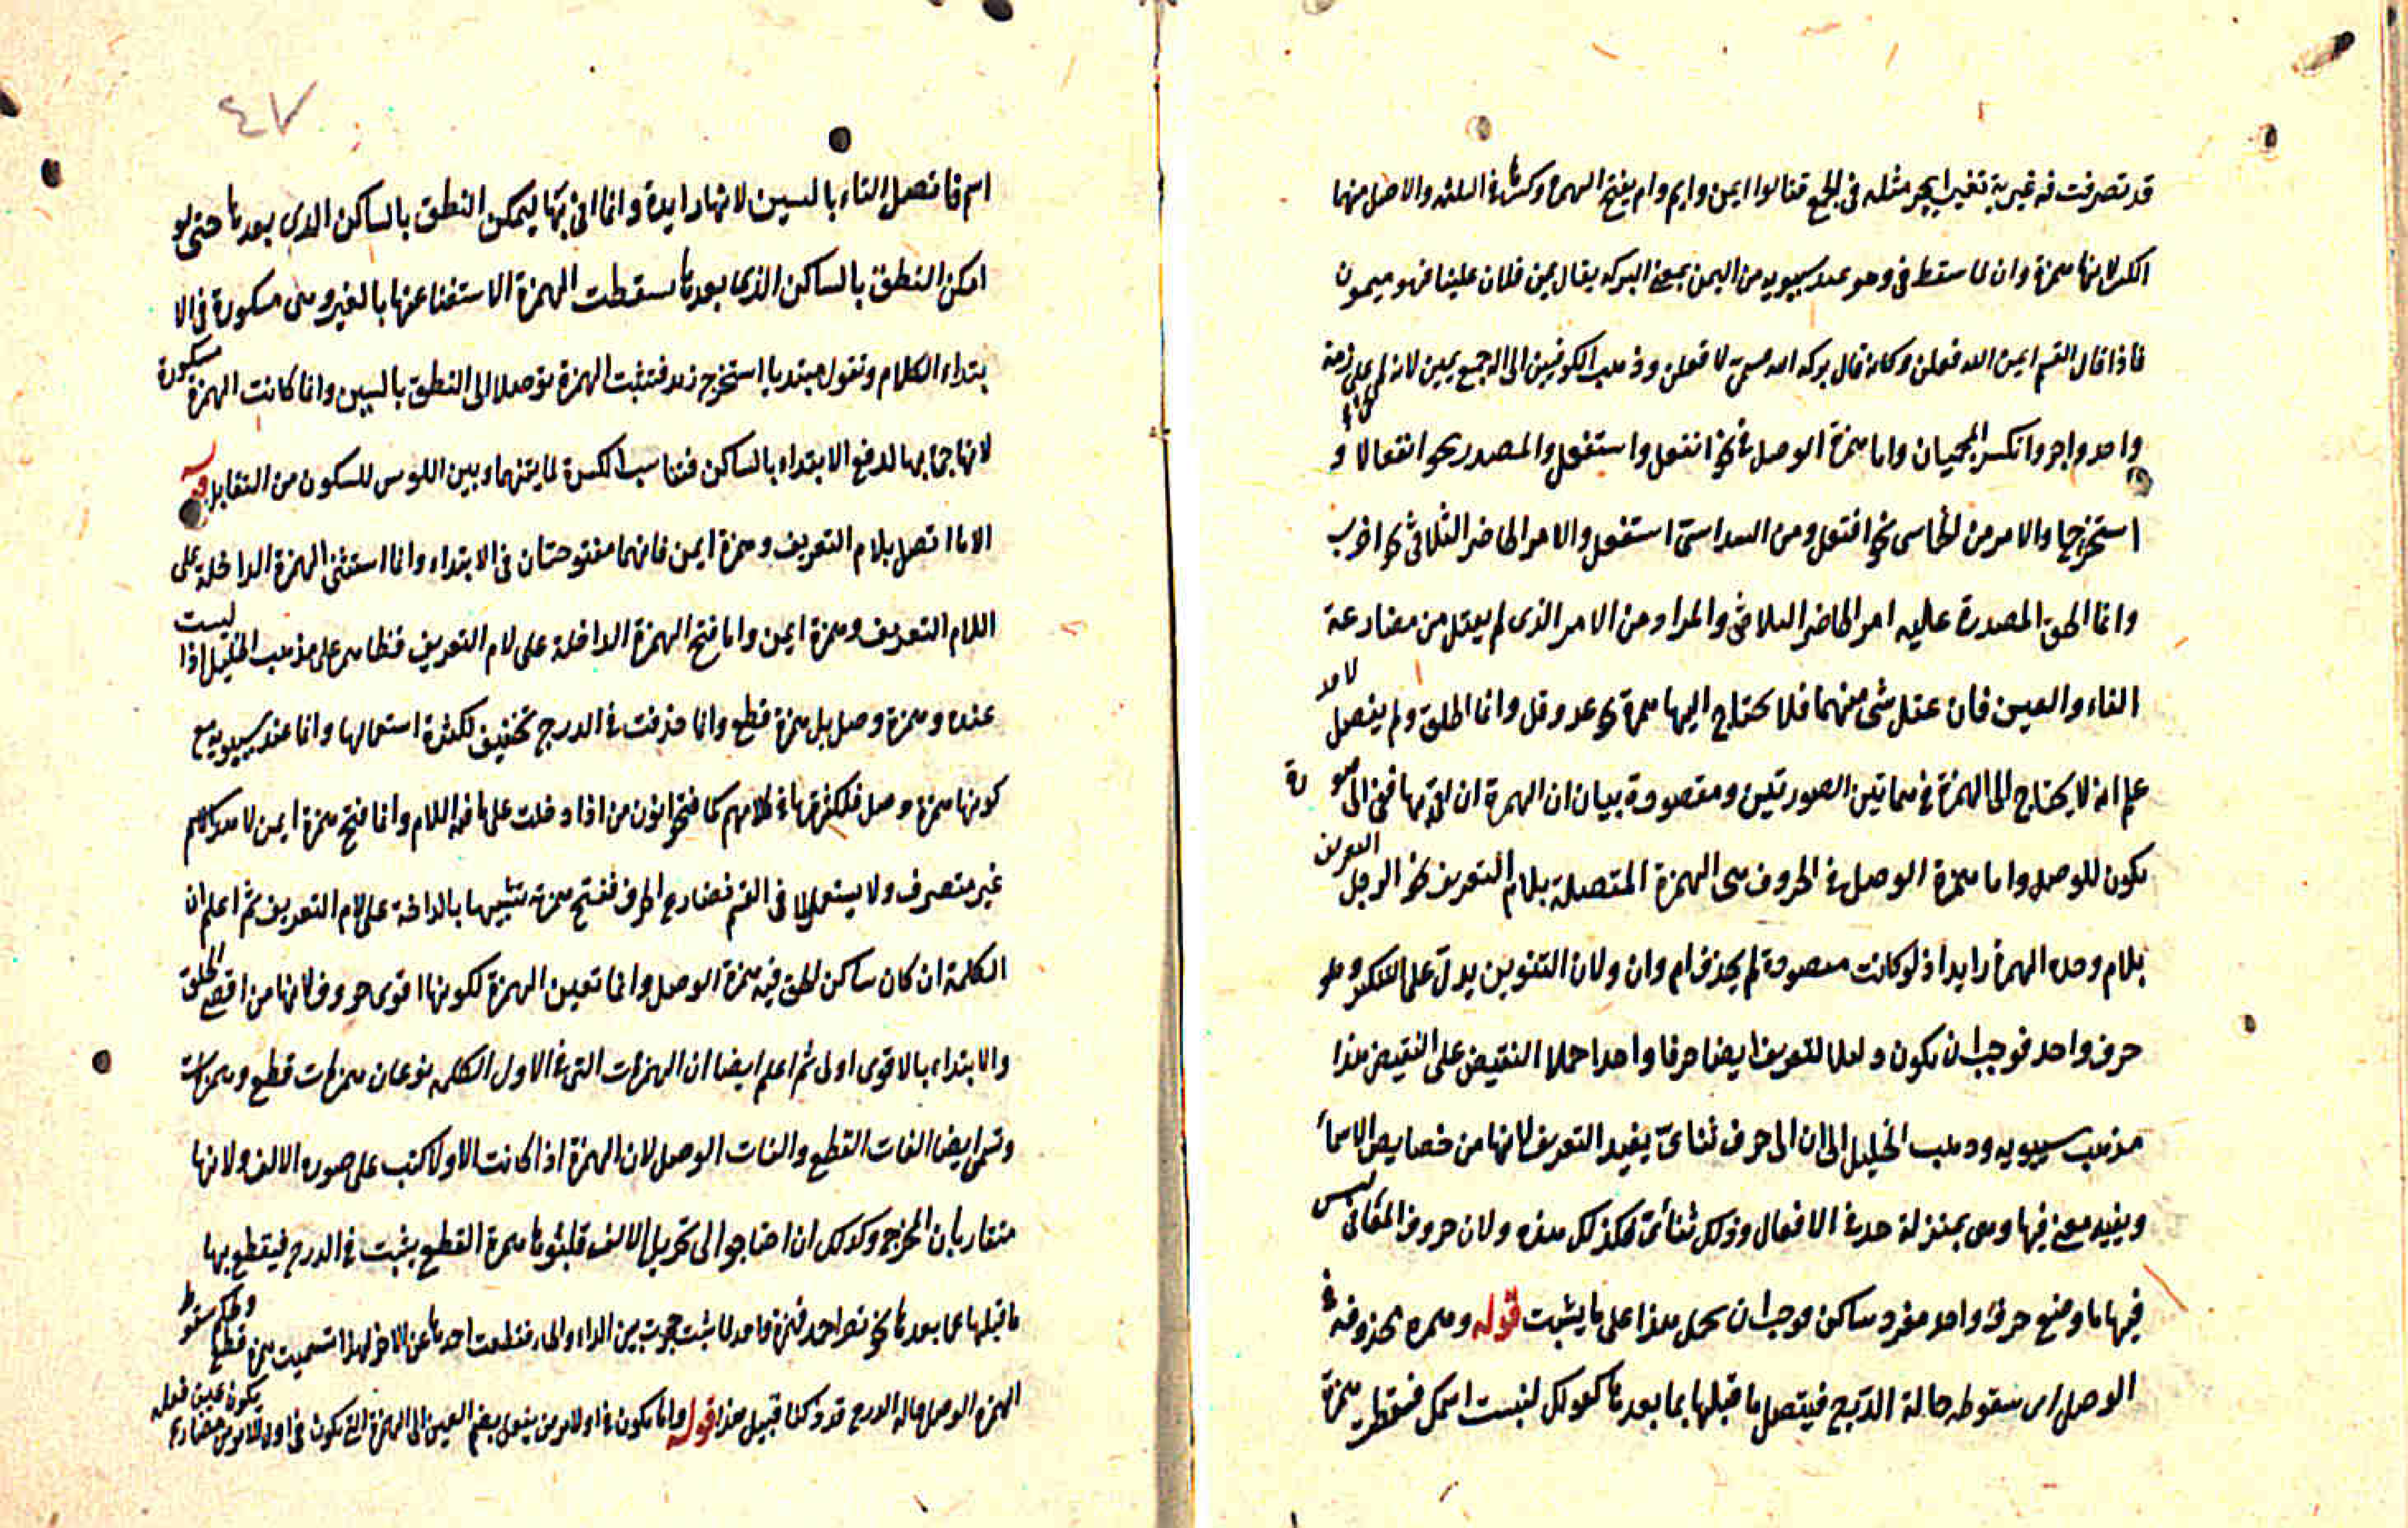 قد تصرفت فيه غير ية تغييرا يجر مثله في الجمع فقالوا ايمن وايم وام بفتح الهمزة وكسرها في الثلثة والاصل منها
الكسر لانها همزة وان لما سقط في وهو عند سيبويه من اليمن بمعنى البركة يقال يمن فلان علينا فهو ميمون
فاذا قال القسم ايمن الله فعلن وكانه قال بركة الله قسمي لافعلن وذهب الكوفيين الى انه جمع يمين لانه لم يجئ على زنة
واحد واجر وانكسر المجيان واما همزة الوصل في نحو انفعل واستفعل والمصدر نحو انفعالا و
استخرجا والامر من الخماسى نحو افتعل ومن السداسى استفعل والامر الحاضر الثلاثى نحو اضرب
وانما الحق المصدرة عاليه امر الحاضر الثلاثى والمراد من الامر الذى لم يعتل من مضارعة
الفاء والعين فان عتل شى منهما فلا يحتاج اليها همزة نحو عد وقل وانما اطلق ولم يفصل لانه
علم انه لا يحتاج الى الهمزة في هاتين الصورتين ومقصوده بيان ان الهمزة ان اتى بها فهى الى صورة
يكون للوصل واما همزة الوصل في الحروف هى الهمزة المتصلة بلام التعريف نحو الرجل التعريف
بلام وحده الهمزة زايد اذ لو كانت مقصودة لم يحذف ام وان ولان التنوين يدل على التنكير وهو
حرف واحد فوجب ان يكون دليل التعريف ايضا حرفا واحدا حملا النقيض على النقيض هذا
مذهب سيبويه وذهب الخليل الى ان الى حرف ثنائى يفيد التعريف لانها من خصايص الاسماء
ويفيد معنى فيها وهى بمنزلة قد في الافعال وذلك ثنائى فكذلك هذه ولان حروف المعانى ليس
فيها ما وضع حرف واحد مفرد ساكن فوجب ان يحمل هذا على ما يثبت قوله وهمزه محذوفة في
الوصل اى سقوطه حالة الدرج فيتصل ما قبلها بما بعدها كقولك لنيست اسمك فسقطت همزة
٤٧
اسم فاتصل التاء بالسين لانها زايدة وانما اتى بها ليمكن النطق بالساكن الذى بعدها حتى لو
امكن النطق بالساكن الذى بعدها سقطت الهمزة الاستغنا عنها بالغير وهى مكسورة في الا
بتداء الكلام وتقول مبتديا استخرج زيد فتثبت الهمزة توصلا الى النطق بالسين وانما كانت الهمزة مكسورة
لانها جئ بها لدفع الابتداء بالساكن فناسب الكسرة لما بينهما وبين اللوس للسكون من التقابل قوله
الا ما اتصل بلام التعريف وهمزة ايمن فانهما مفتوحتان في الابتداء وانما استثنى الهمزة الداخلة على
اللام التعريف وهمزة ايمن واما فتح الهمزة الداخلة على لام التعريف فظاهر على مذهب الخليل اذا ليست
عنده وهمزة وصل بل همزة قطع وانما حذفت في الدرج تخفيف لكثرة استعمالها وانما عند سيبويه مع
كونها همزة وصل فلكثرتها في كلامهم كما فتحوا نون من اذا دخلت على ما فيه اللام وانما فتح همزة ايمن لانه اسم
غير متصرف ولا يستعمل الا في القسم فضارع الحرف ففتح همزته تشبيها بالداخلة على لام التعريف ثم اعلم ان
الكلمة ان كان ساكن لحق فيه همزة الوصل وانما تعين الهمزة لكونها اقوى حروف لانها من اقصى الحلق
والابتداء بالاقوى اولى ثم اعلم ايضا ان الهمزات التى في الاول الكلمه نوعان همزات قطع وهمزات
وتسمى ايضا الفات القطع والفات الوصل لان الهمزة اذا كانت الاولا كتب على صوره الالف ولانها
متقاربان المخرج وكذلك ان احتاجوا الى تحريل الالف قلبوها همزة القطع يثبت في الدرج فيقطع بها
ما قبلها عما بعدها نحو احد فهمزة واحد لما ثبت حرب بين الداء والحاء فقطعت احدها عن الاخر لهذا تسميت همزة قطع وحكم سقوط
الهمزة الوصل حالة الدرج قد ذكرنا قبيل هذا قوله وانما يكون في اول الامر من يفعل بضم العين الى الهمزة التى يكون في اول الامر من مضارع يكون عين فعله